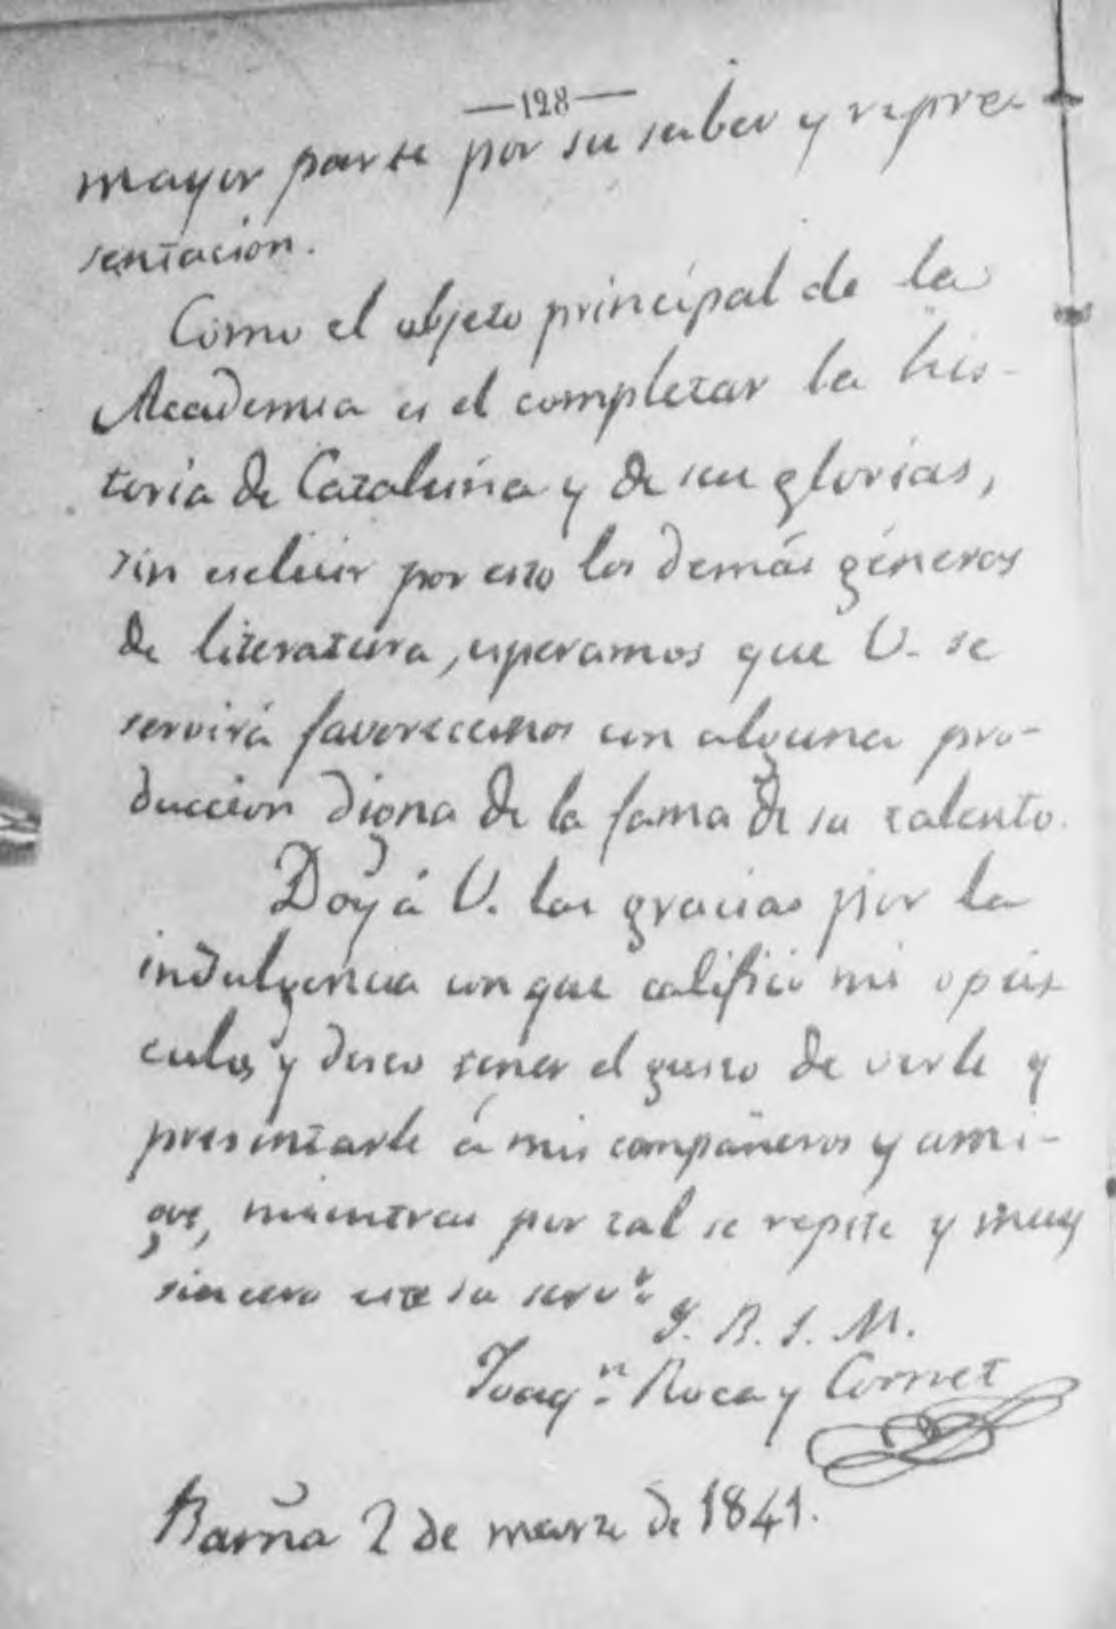 —128—
mayor parte por su saber y repre-
sentacion.
Como el objeto principal de la
Academia es el completar la his-
toria de Cataluña y de sus glorias,
sin escluir por esto los demás géneros
de literatura, esperamos que V. se
servirá favorecernos con alguna pro-
duccion digna de la fama de su talento.
Doy á V. las gracias por la
indulgencia con que calificó mis opús-
culos y deseo tener el gusto de verle y
presentarle á mis compañeros y ami-
gos, mientras por tal se repite y muy
sincero este su serv.r
Q. B. S. M.
Joaq.n Roca y Cornet
Barña 2 de marzo de 1841.